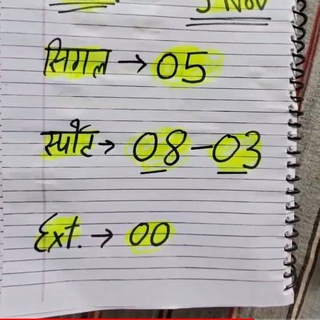 5 Nov
सिंगल → 05
स्पोर्ट → 08-03
Ext. → 00